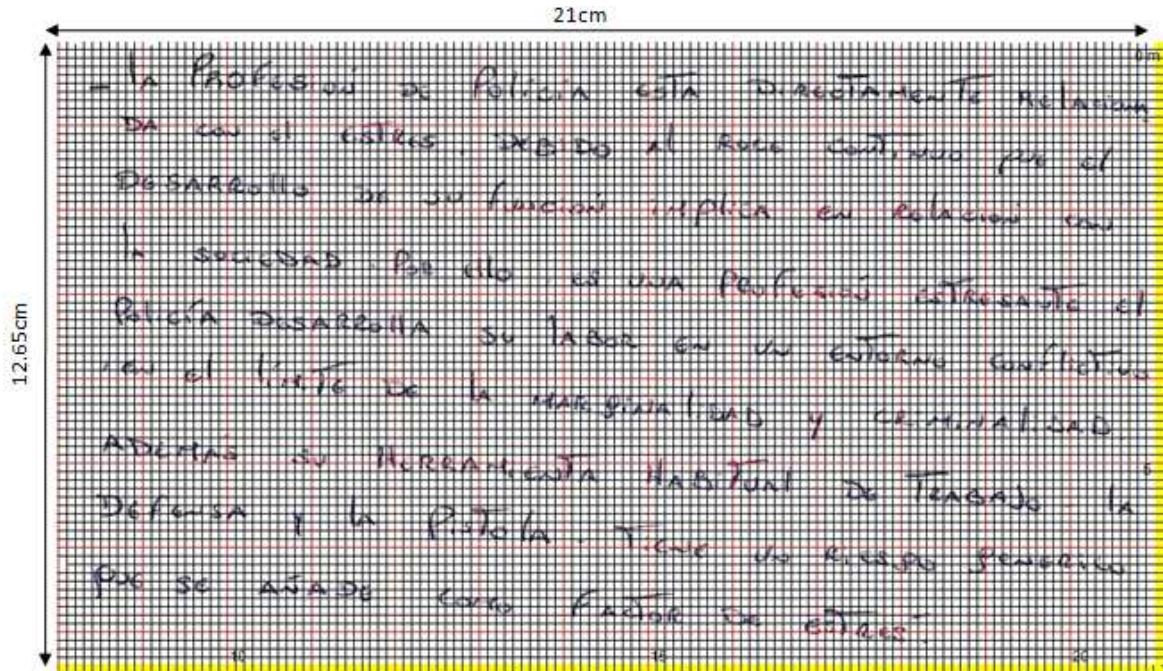 21cm
12.65cm
0 m
- lA PROFESIÓN DE POLICIA ESTA DIRECTAMENTE RELACIONA
DA CON el ESTRES. DEBIDO Al ROCE CONTINUO QUE el
DESARROllO DE SU FUNCION IMPLICA EN RELACIÓN CON
lA SOCIEDAD. POR EllO. ES UNA PROFESIÓN ESTRESANTE el
POLICÍA DESARROllA SU lABOR EN UN ENTORNO CONFLICTIVO
, EN el LIMITE DE lA MARGINALIDAD Y CRIMINALIDAD
ADEMAS SU HERRAMIENTA HABITUAL DE TRABAJO. lA
DEFENSA Y lA PISTOLA. TIENE UN RIESGO GENERICO
QUE SE AÑADE COMO FACTOR DE ESTRES.
5
10 15 20